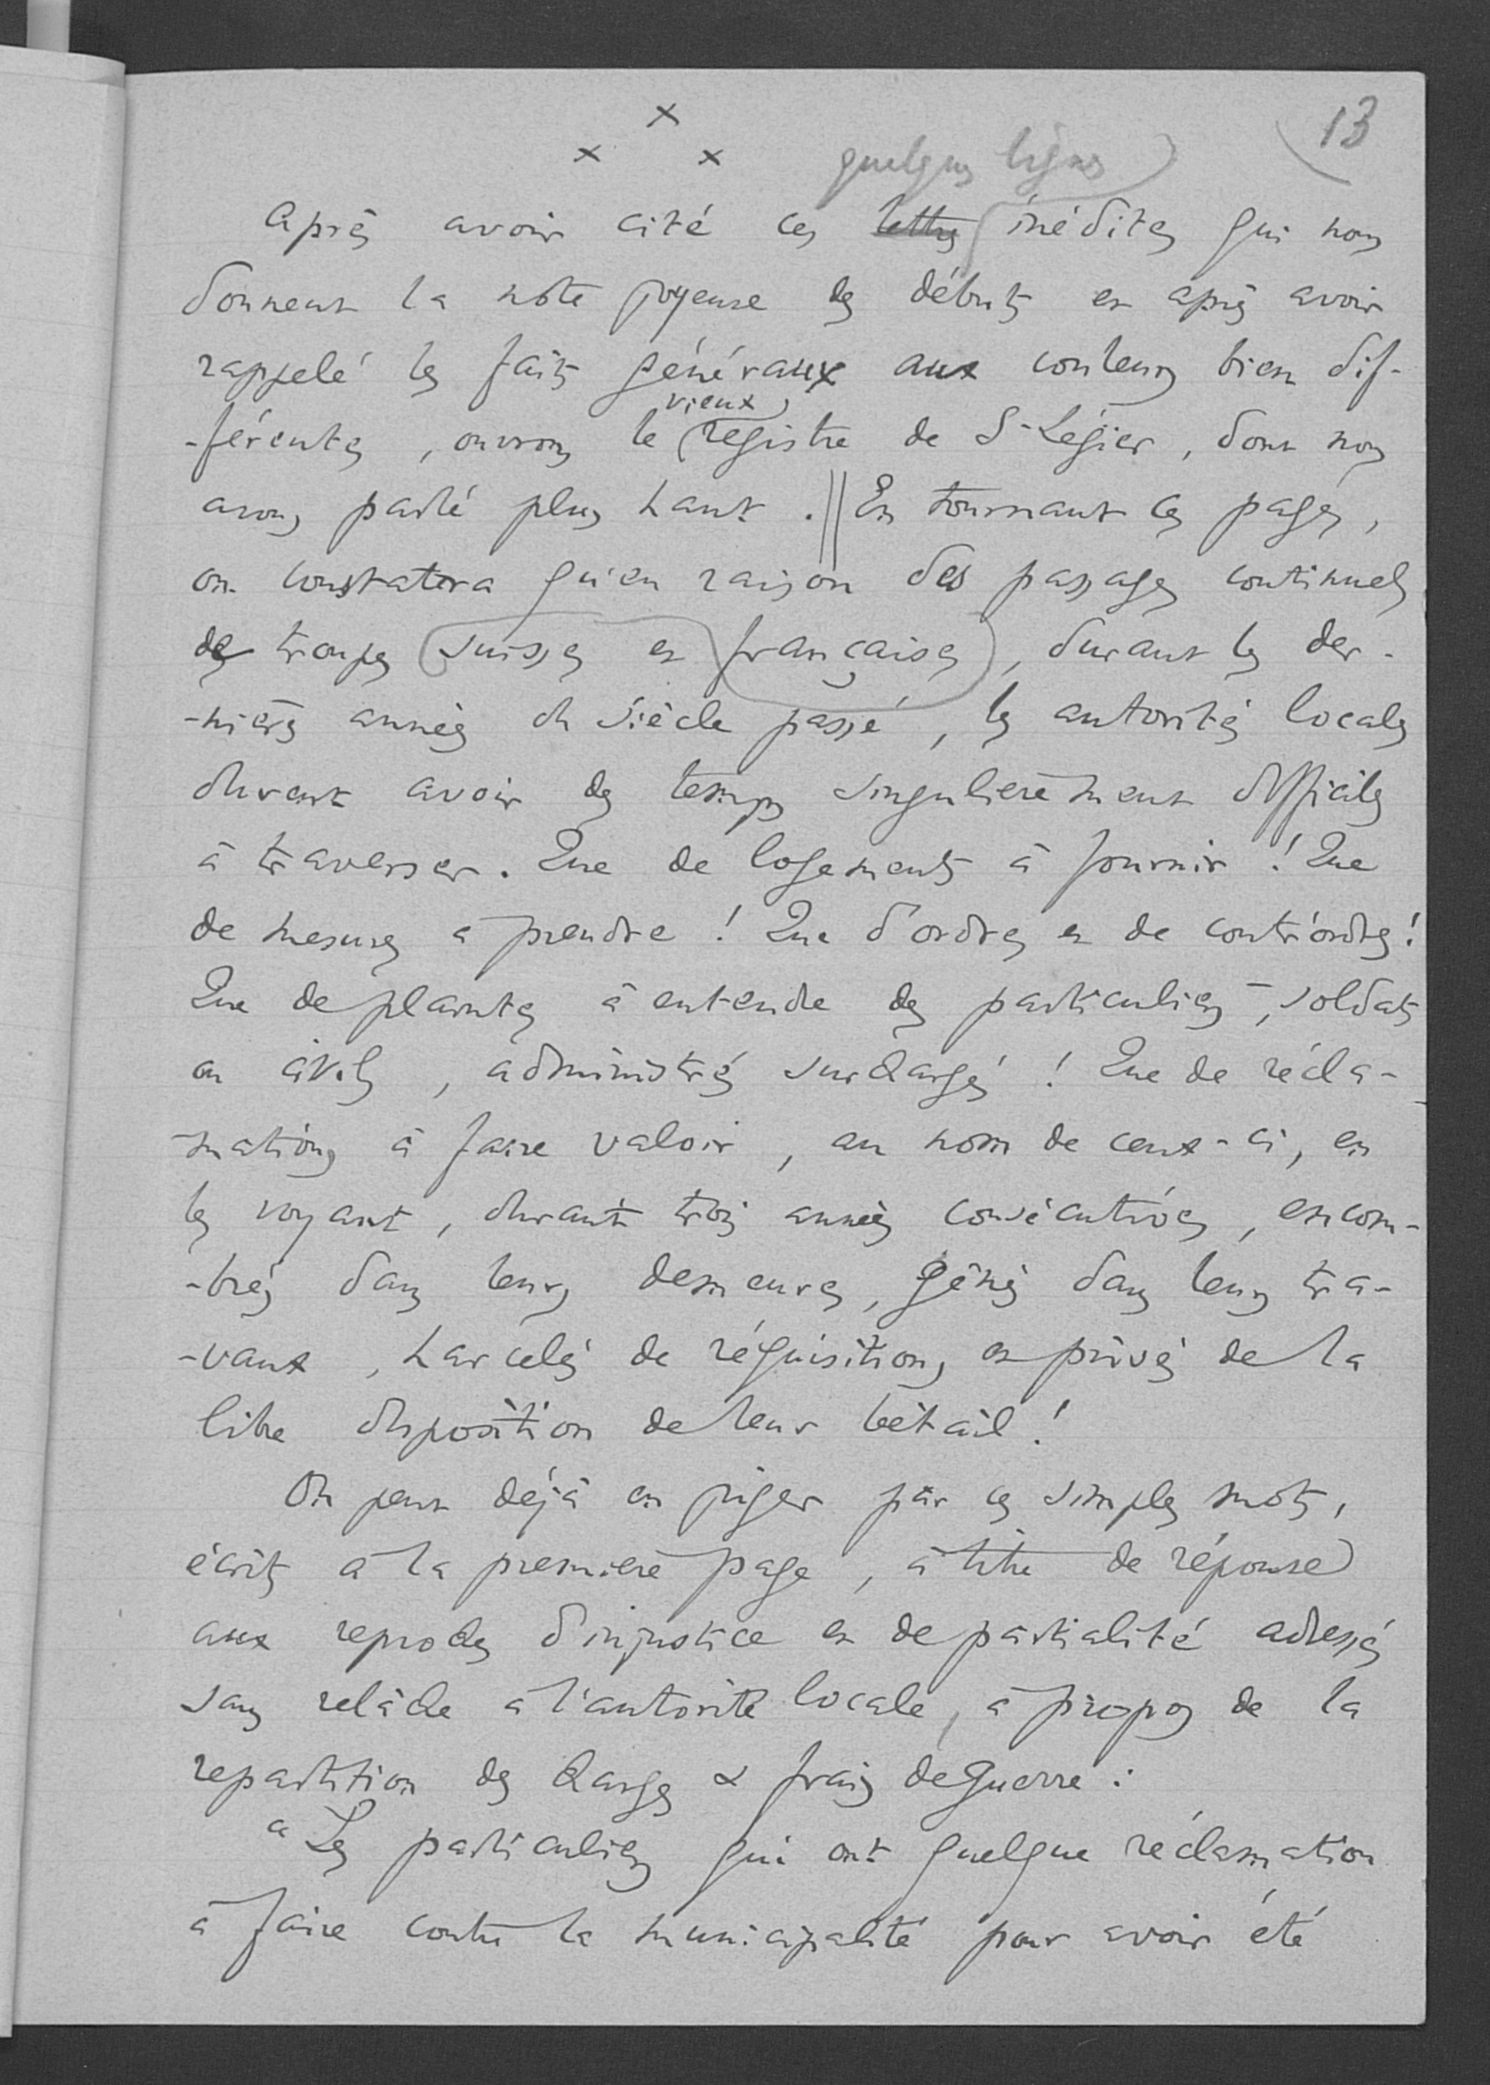 13
x
x x
quelques lignes
Après avoir cité ces lettres inédites qui nous
donnent la note joyeuse des débuts et après avoir
rappelé les faits généraux aux couleurs bien dif-
-férentes, ouvrons le vieux registre de St-Légier, dont nous
avons parlé plus haut. || En tournant ces pages,
on constatera qu'en raison des passages continuels
de troupes suisses et françaises, durant les der-
-nières années du siècle passé, les autorités locales
durent avoir des temps singulièrement difficiles
à traverser. Que de logements à fournir ! Que
de mesures à prendre ! Que d'ordres et de contr'ordres !
Que de plaintes à entendre des particuliers, soldats
ou civils, administrés surchargés ! Que de récla-
-mations à faire valoir, au nom de ceux-ci, en
les voyant, durant trois années consécutives, encom-
-brés dans leurs demeures, gênés dans leurs tra-
-vaux, harcelés de réquisitions et privés de la
libre disposition de leur bétail !
On peut déjà en juger par ces simples mots,
écrits à la première page, à titre de réponse
aux reproches d'injustice et de partialité adressés
sans relâche à l'autorité locale, à propos de la
repartition des charges & frais de guerre :
« Les particuliers qui ont quelque réclamation
à faire contre la municipalité pour avoir été